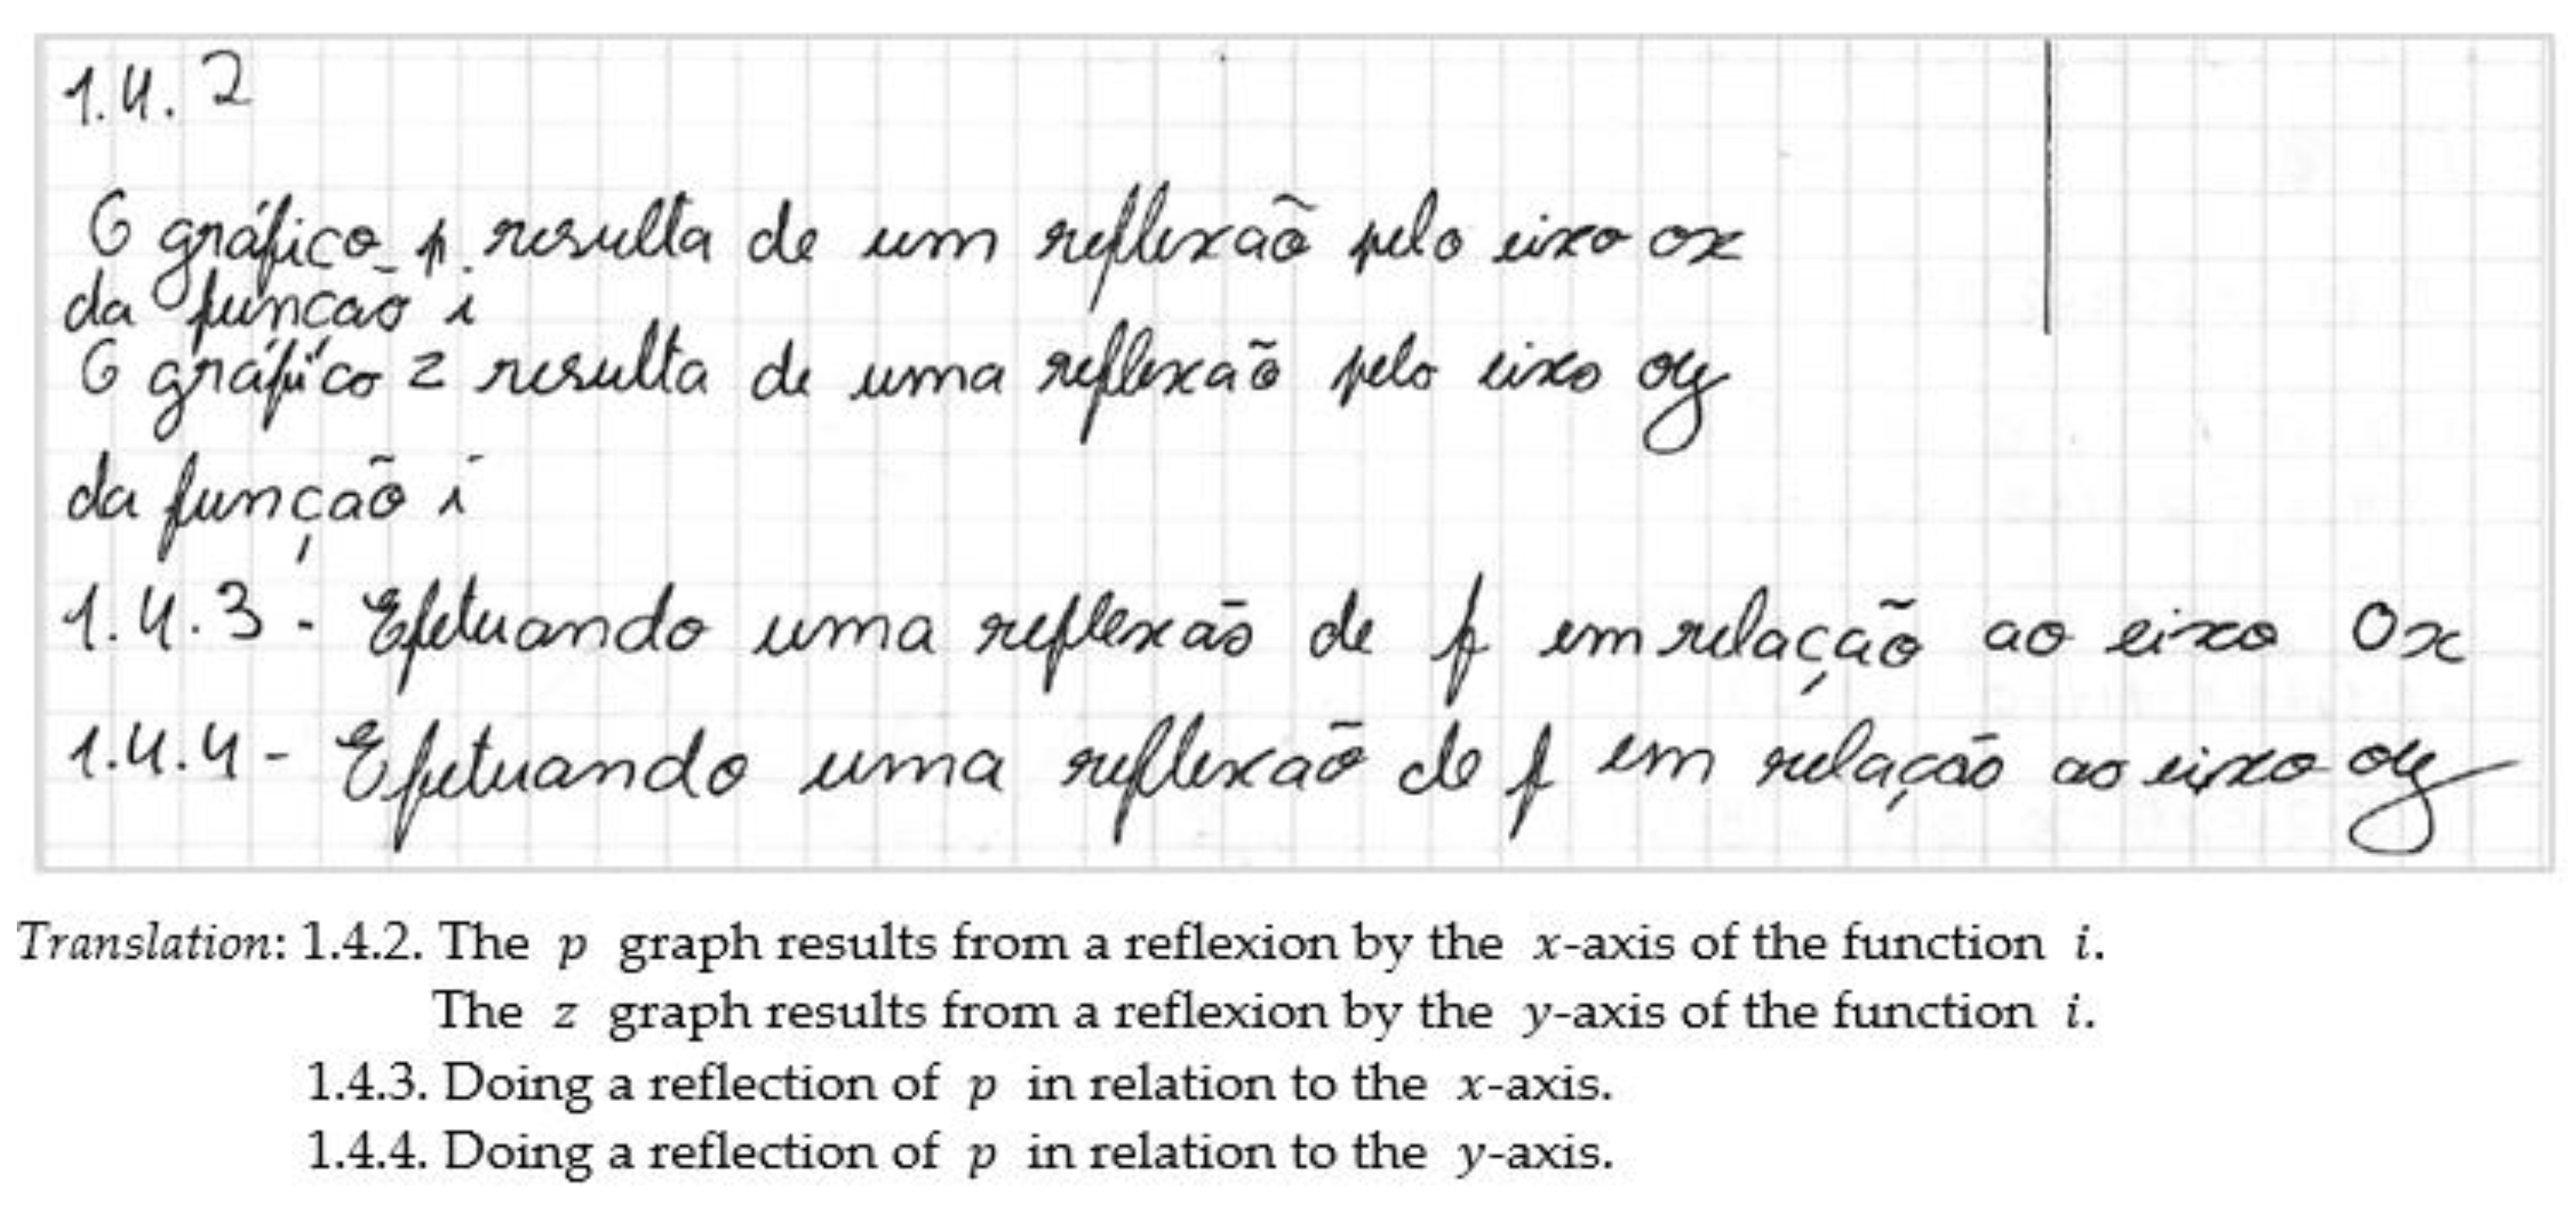 1.4.2
O gráfico p resulta de um reflexão pelo eixo ox
da função i
O gráfico z resulta de uma reflexão pelo eixo oy
da função i
1.4.3 - Efetuando uma reflexão de f em relação ao eixo Ox
1.4.4 - Efetuando uma reflexão de f em relação ao eixo oy
Translation: 1.4.2. The p graph results from a reflexion by the x-axis of the function i.
The z graph results from a reflexion by the y-axis of the function i.
1.4.3. Doing a reflection of p in relation to the x-axis.
1.4.4. Doing a reflection of p in relation to the y-axis.